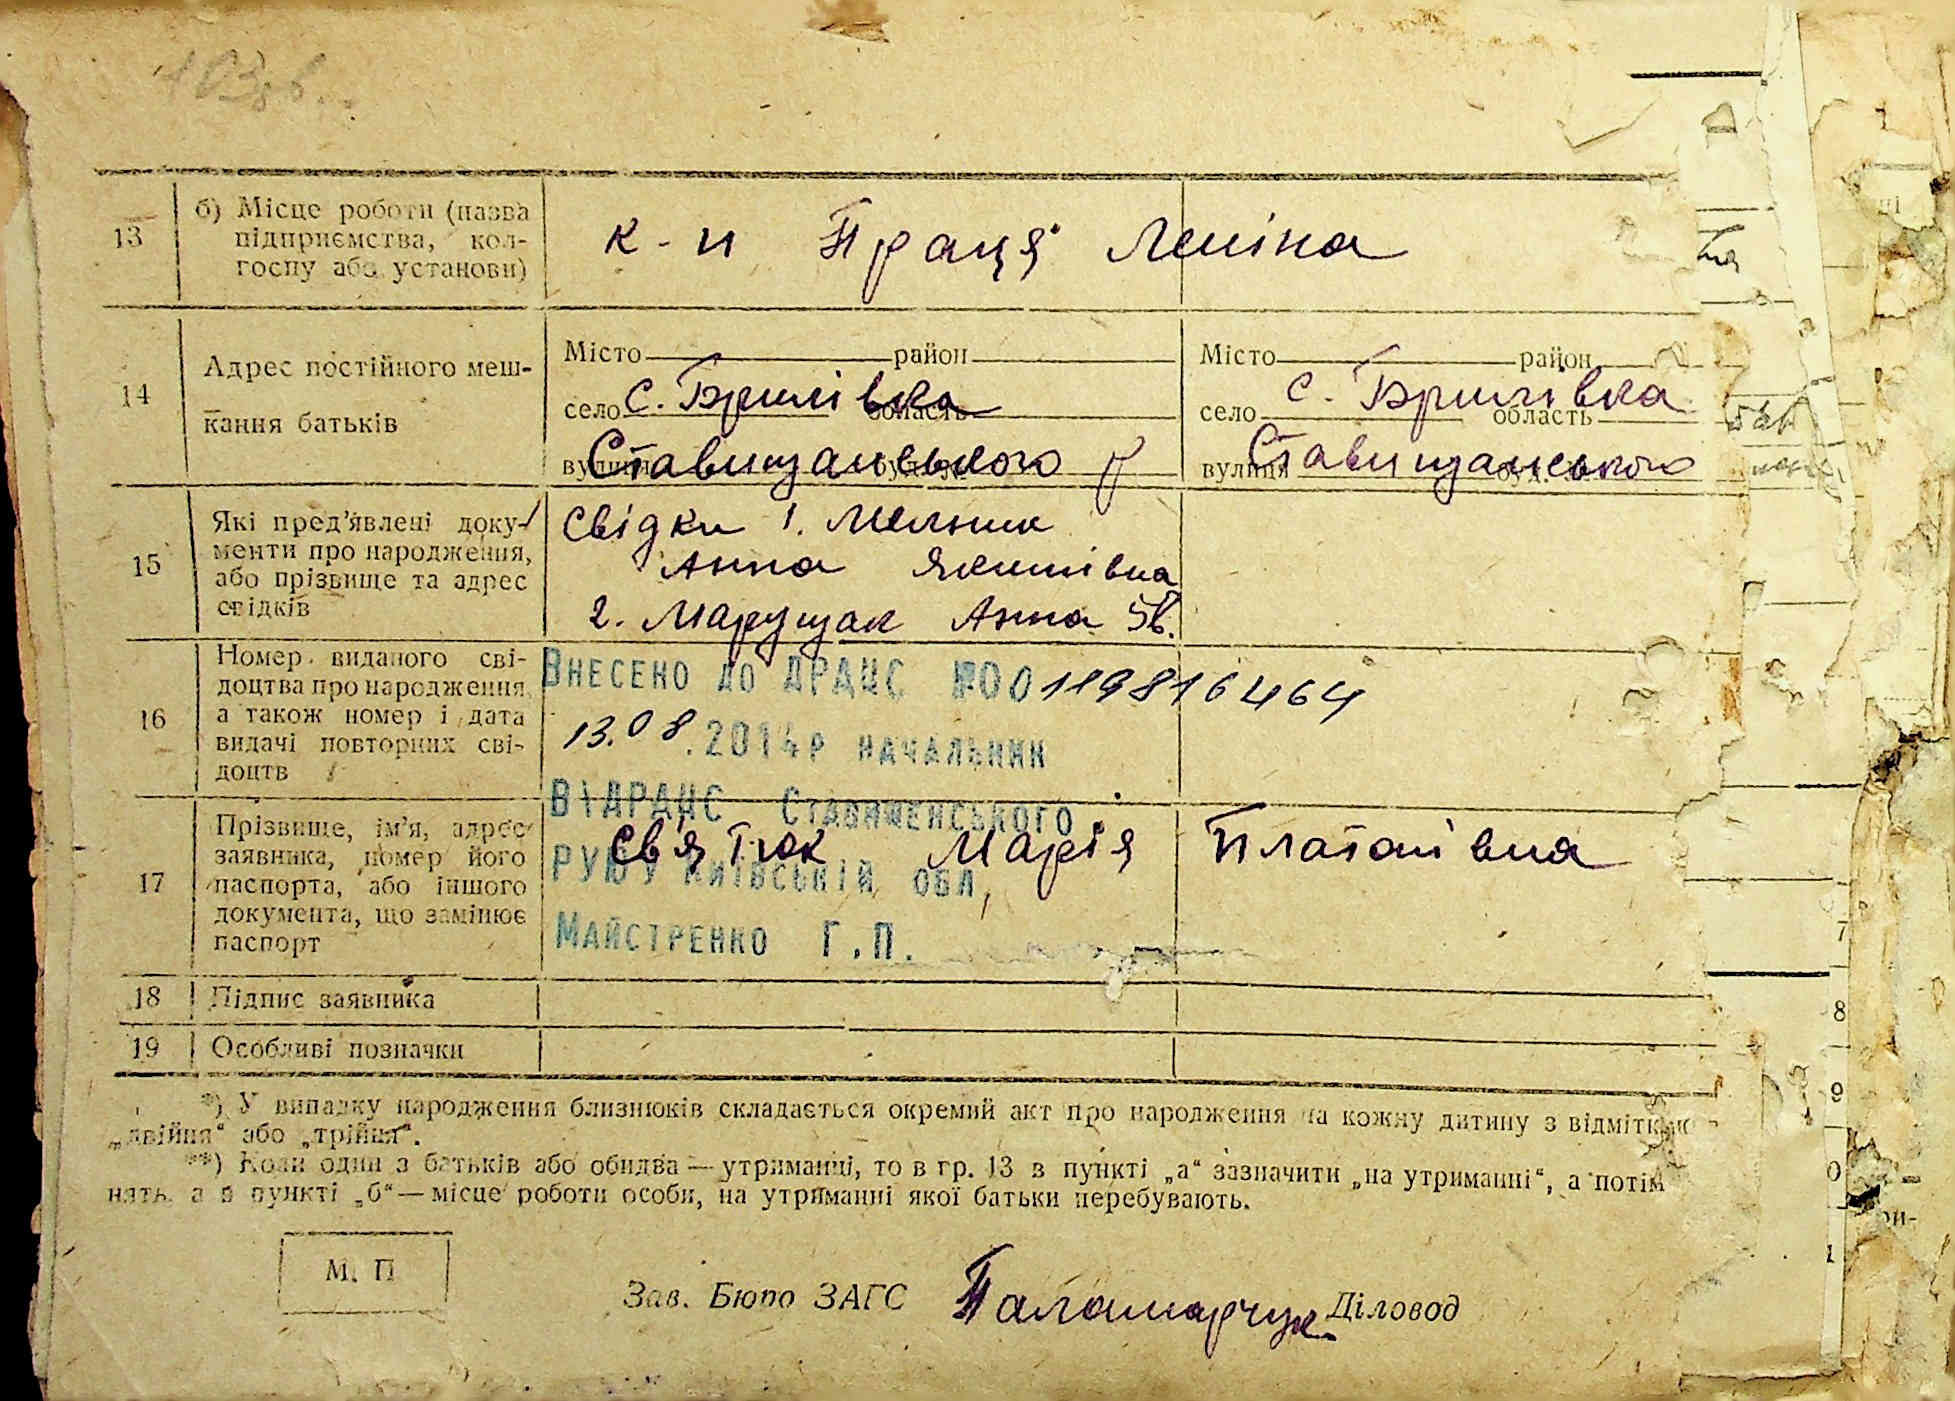 13 б) Місце роботи (назва підприємства, колгоспу або установи) к-п Праця Леніна
14 Адрес постійного мешкання батьків
Місто район Місто район
село с. Бришівка область село с. Бришівка область
вулиця Ставищанського р вулиця Ставищанського
15 Які пред'явлені документи про народження, або прізвище та адрес свідків
Свідки 1. Мельник
Анна Якимівна
2. Марущак Анна Ів.
16 Номер виданого свідоцтва про народження, а також номер і дата видачі повторних свідоцтв
Внесено до ДРАЦС №00119816464
13.08.2014р начальник
ВІДРАЦС Ставищенського
РУЮ У Київській обл,
Майстренко Г.П.
17 Прізвище, ім'я, адрес заявника, номер його паспорта, або іншого документа, що замінює паспорт
Св'ятюк Марія Платонівна
18 Підпис заявника
19 Особливі позначки
*) У випадку народження близнюків складається окремий акт про народження на кожну дитину з відміткою
„двійня“ або „трійня“.
**) Коли один з батьків або обидва — утриманці, то в гр. 13 в пункті „а“ зазначити „на утриманні“, а потім
а в пункті „б“ — місце роботи особи, на утриманні якої батьки перебувають.
М. П
Зав. Бюро ЗАГС Паламарчук Діловод
7
8
9
0
1